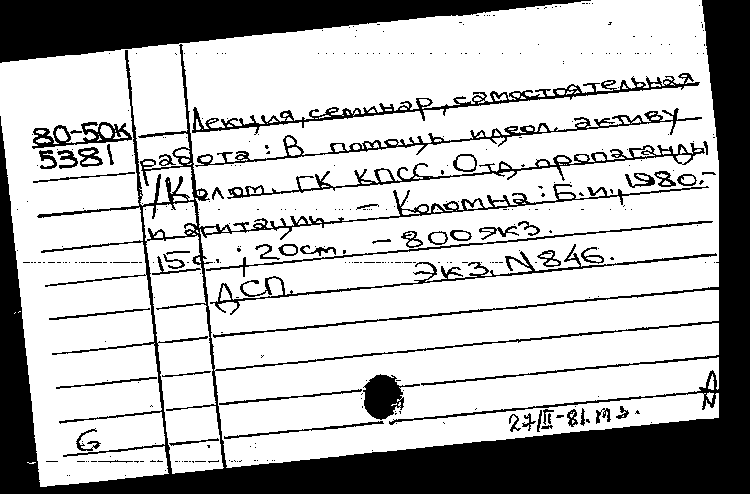 80-50к
5381
Лекция, семинар, самостоятельная
работа: В помощь идеол. активу
/Колом. ГК КПСС. Отд. пропаганды
и агитации. – Коломна: Б.и., 1980.-
15 с.; 20 см. – 800 экз.
ДСП. Экз. N 846.
6
27/II-81.